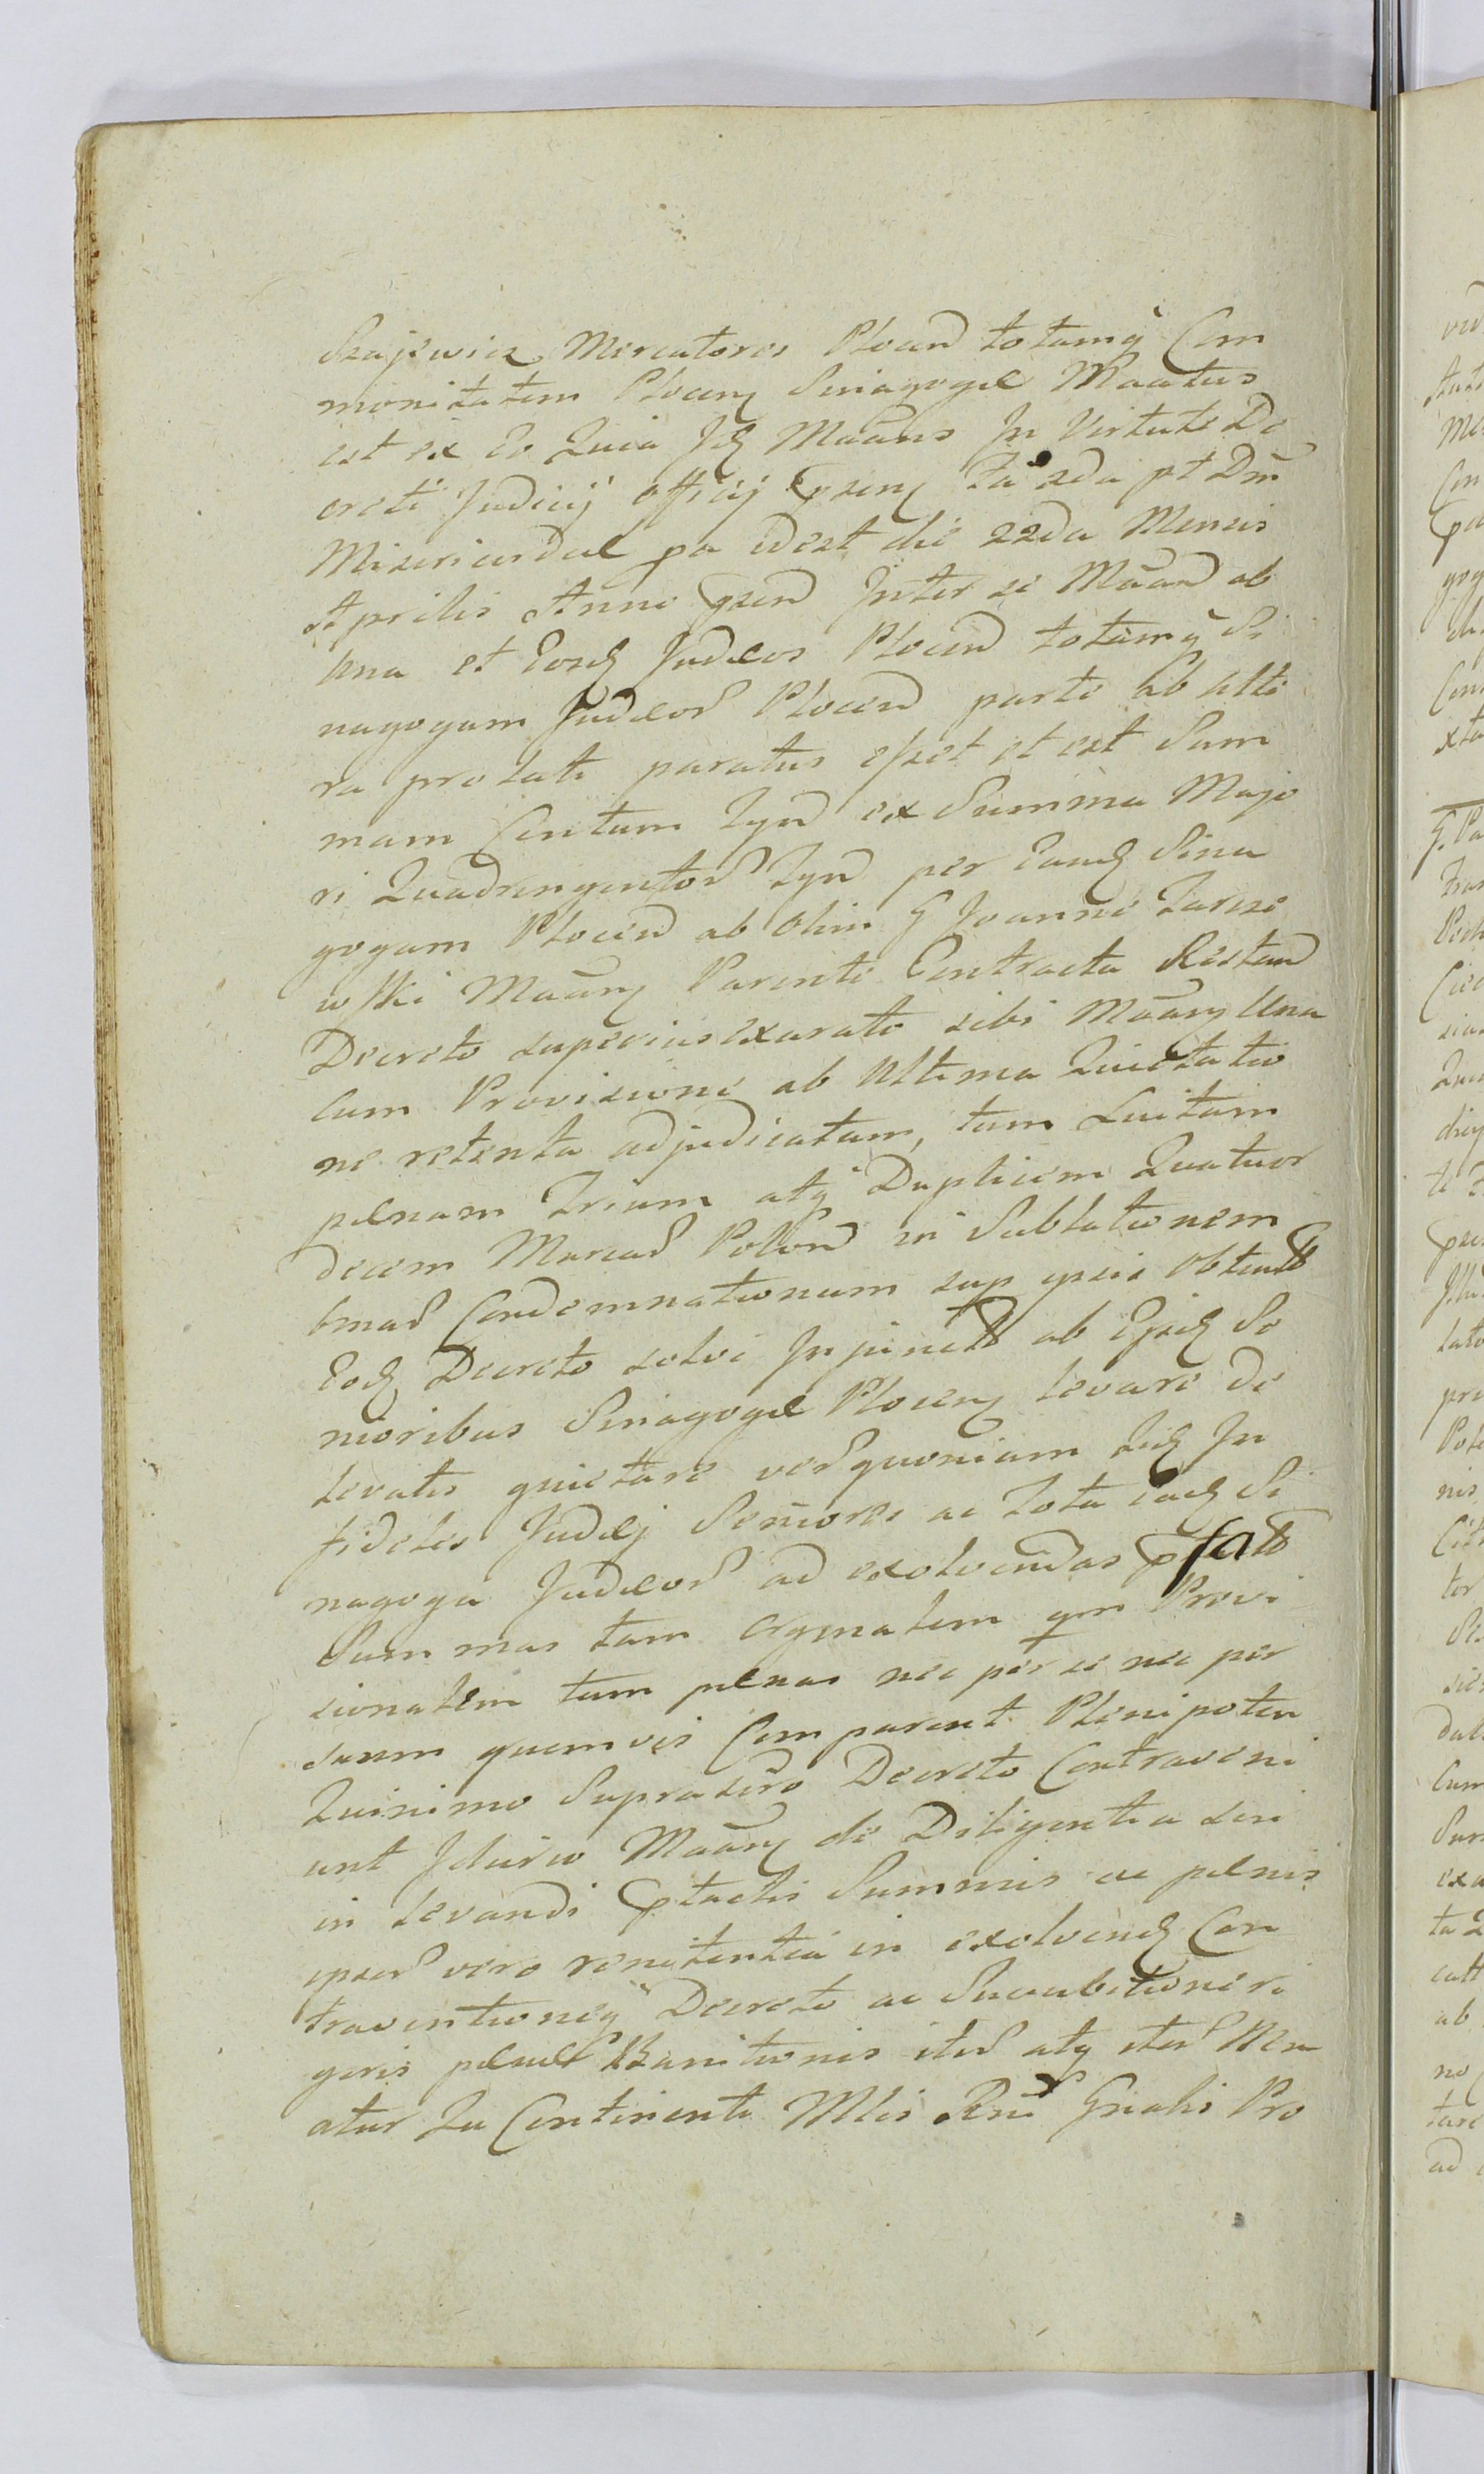 Szajewicz Mercatores Plocen totamq Com
monitatem Plocen Sinagogæ Maatus
est ex Eo Quia Id Maãns In Virtute De
creti Judicij Officij psen fa 2da pt Dm
Misericordiæ pa idest die 22da Mensis
Aprilis Anno psen Inter se Maãn ab
Una et Eosd Judæos Plocen totamq Si
nagogam Judæor Plocen parte ab alte
ra prolati paratus esset et est Sum
mam Centum Tyn ex Summa Majo
ri Quadringentor Tyn per Eand Sina
gogam Plocen ab Olim G Joanne Tarcze
wski Maãn Parente Contracta Restan
Decreto superius exarato sibi Maãn Una
cum Provisione ab Ultima Quietatio
ne retenta adjudicatam, tum Luitam
pænam Trium atq Duplicem Quatuor
decem Marcar Polon in Sublationem
binar Condemnationum sup ipsis obtent
Eod Decreto solvi Injunct ab Ejsd Se
nioribus Sinagogæ Plocen levare de
levatis quietare ver quoniam Iid In
fideles Judæj Seniores ac Tota ead Si
nagoga Judæor ad exolvendas pfat
Summas tam Orgnalem qm Provi
sionalem tum pænas nec per se nec per
suum quemvis Comparent Plenipoten
Quinimo Suprascro Decreto Contraveni
unt Idcirco Maãn de Diligentia sui
in levandi ptactis Summis ac pænis
ipsor vero renitentia in exolvend Con
traventioneq Decreto ac Succubitione ri
goris pænar Banitionis iter atq iter Men
atur In Continenti Mlis Rni Gnalis Pro